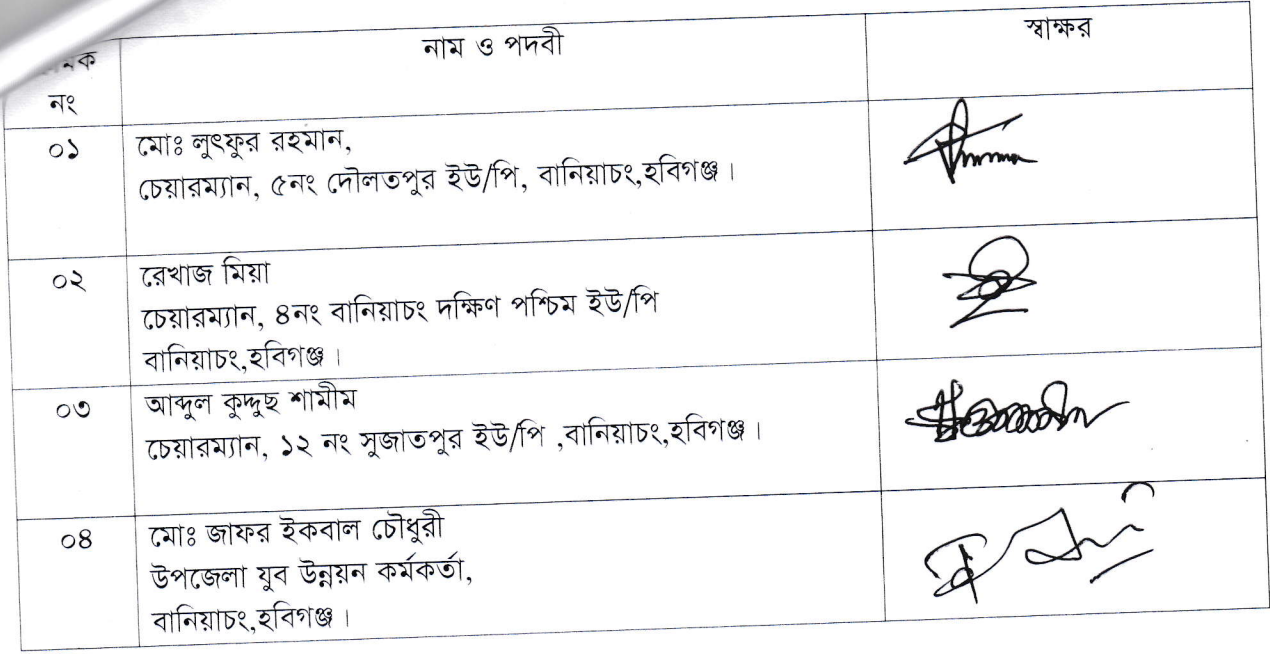 নাম ও পদবী
স্বাক্ষর
মক
নং
০১
মোঃ লুৎফুর রহমান,
চেয়ারম্যান, ৫নং দৌলতপুর ইউ/পি, বানিয়াচং,হবিগঞ্জ।
০২
রেখাজ মিয়া
চেয়ারম্যান, ৪নং বানিয়াচং দক্ষিণ পশ্চিম ইউ/পি
বানিয়াচং,হবিগঞ্জ।
০৩
আব্দুল কুদ্দুছ শামীম
চেয়ারম্যান, ১২ নং সুজাতপুর ইউ/পি ,বানিয়াচং,হবিগঞ্জ।
০৪
মোঃ জাফর ইকবাল চৌধুরী
উপজেলা যুব উন্নয়ন কর্মকর্তা,
বানিয়াচং,হবিগঞ্জ।